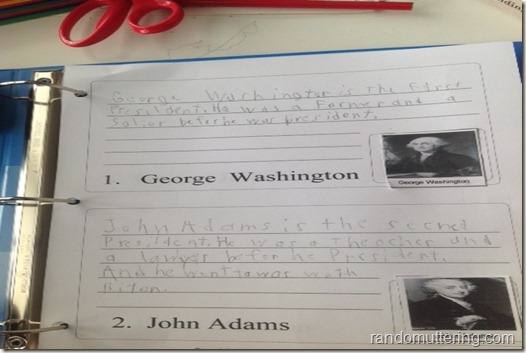 George Washington is The First
President. He was a Farmer and a
Solior befer he was president.
1. George Washington
George Washington
John Adams is the second
President. He was a Theacher and
a lawyer befor he President.
And he wint to war with
Biton.
2. John Adams
randomuttering.com